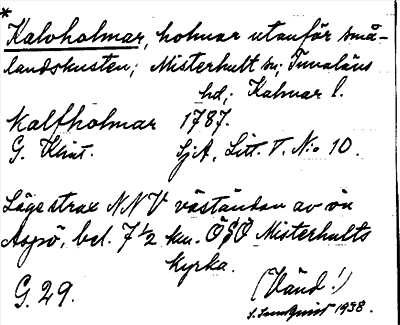 *
Kalvholmar, holmar utanför små-
landskusten; Misterhult sn; Tunaläns
hd; Kalmar l.
Kalfholmar 1787.
G. Klint. SjA, Litt. T. N:o 10.
Läge strax NNV väständan av ön
Aspö, bel. 7 1/2 km. ÖSÖ Misterhults
kyrka.
G. 29. (Vänd!)
S. Lundquist 1938.